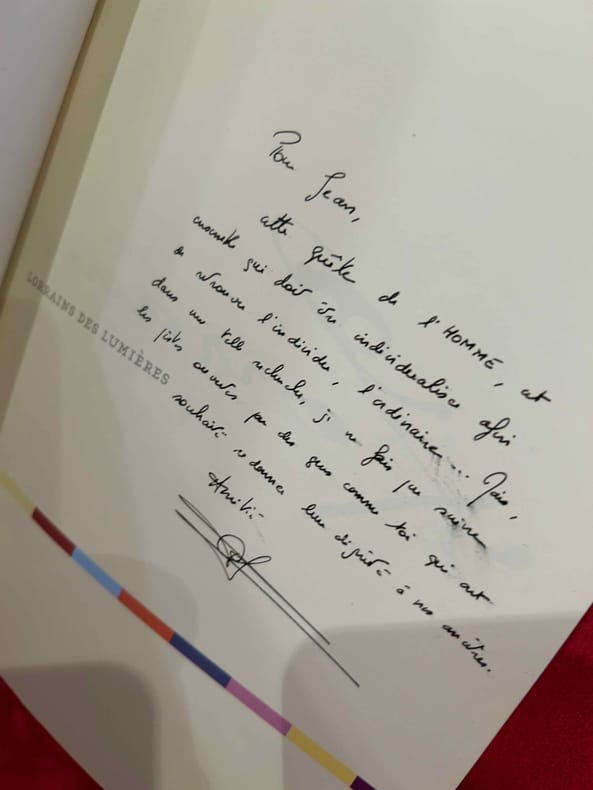 Pour Jean,
cette quête de l'HOMME, cet
ensemble qui doit être individualisé afin
de retrouver l'individu, l'ordinaire... Mais,
dans une telle recherche, je ne fais que suivre
les pistes ouvertes par des gens comme toi qui ont
souhaité redonner leur dignité à nos ancêtres.
Amitié
LORRAINS DES LUMIÈRES